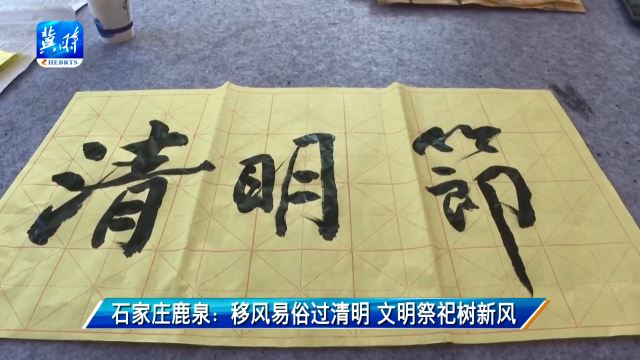 冀时
HEBRTS
清明節
石家庄鹿泉：移风易俗过清明 文明祭祀树新风